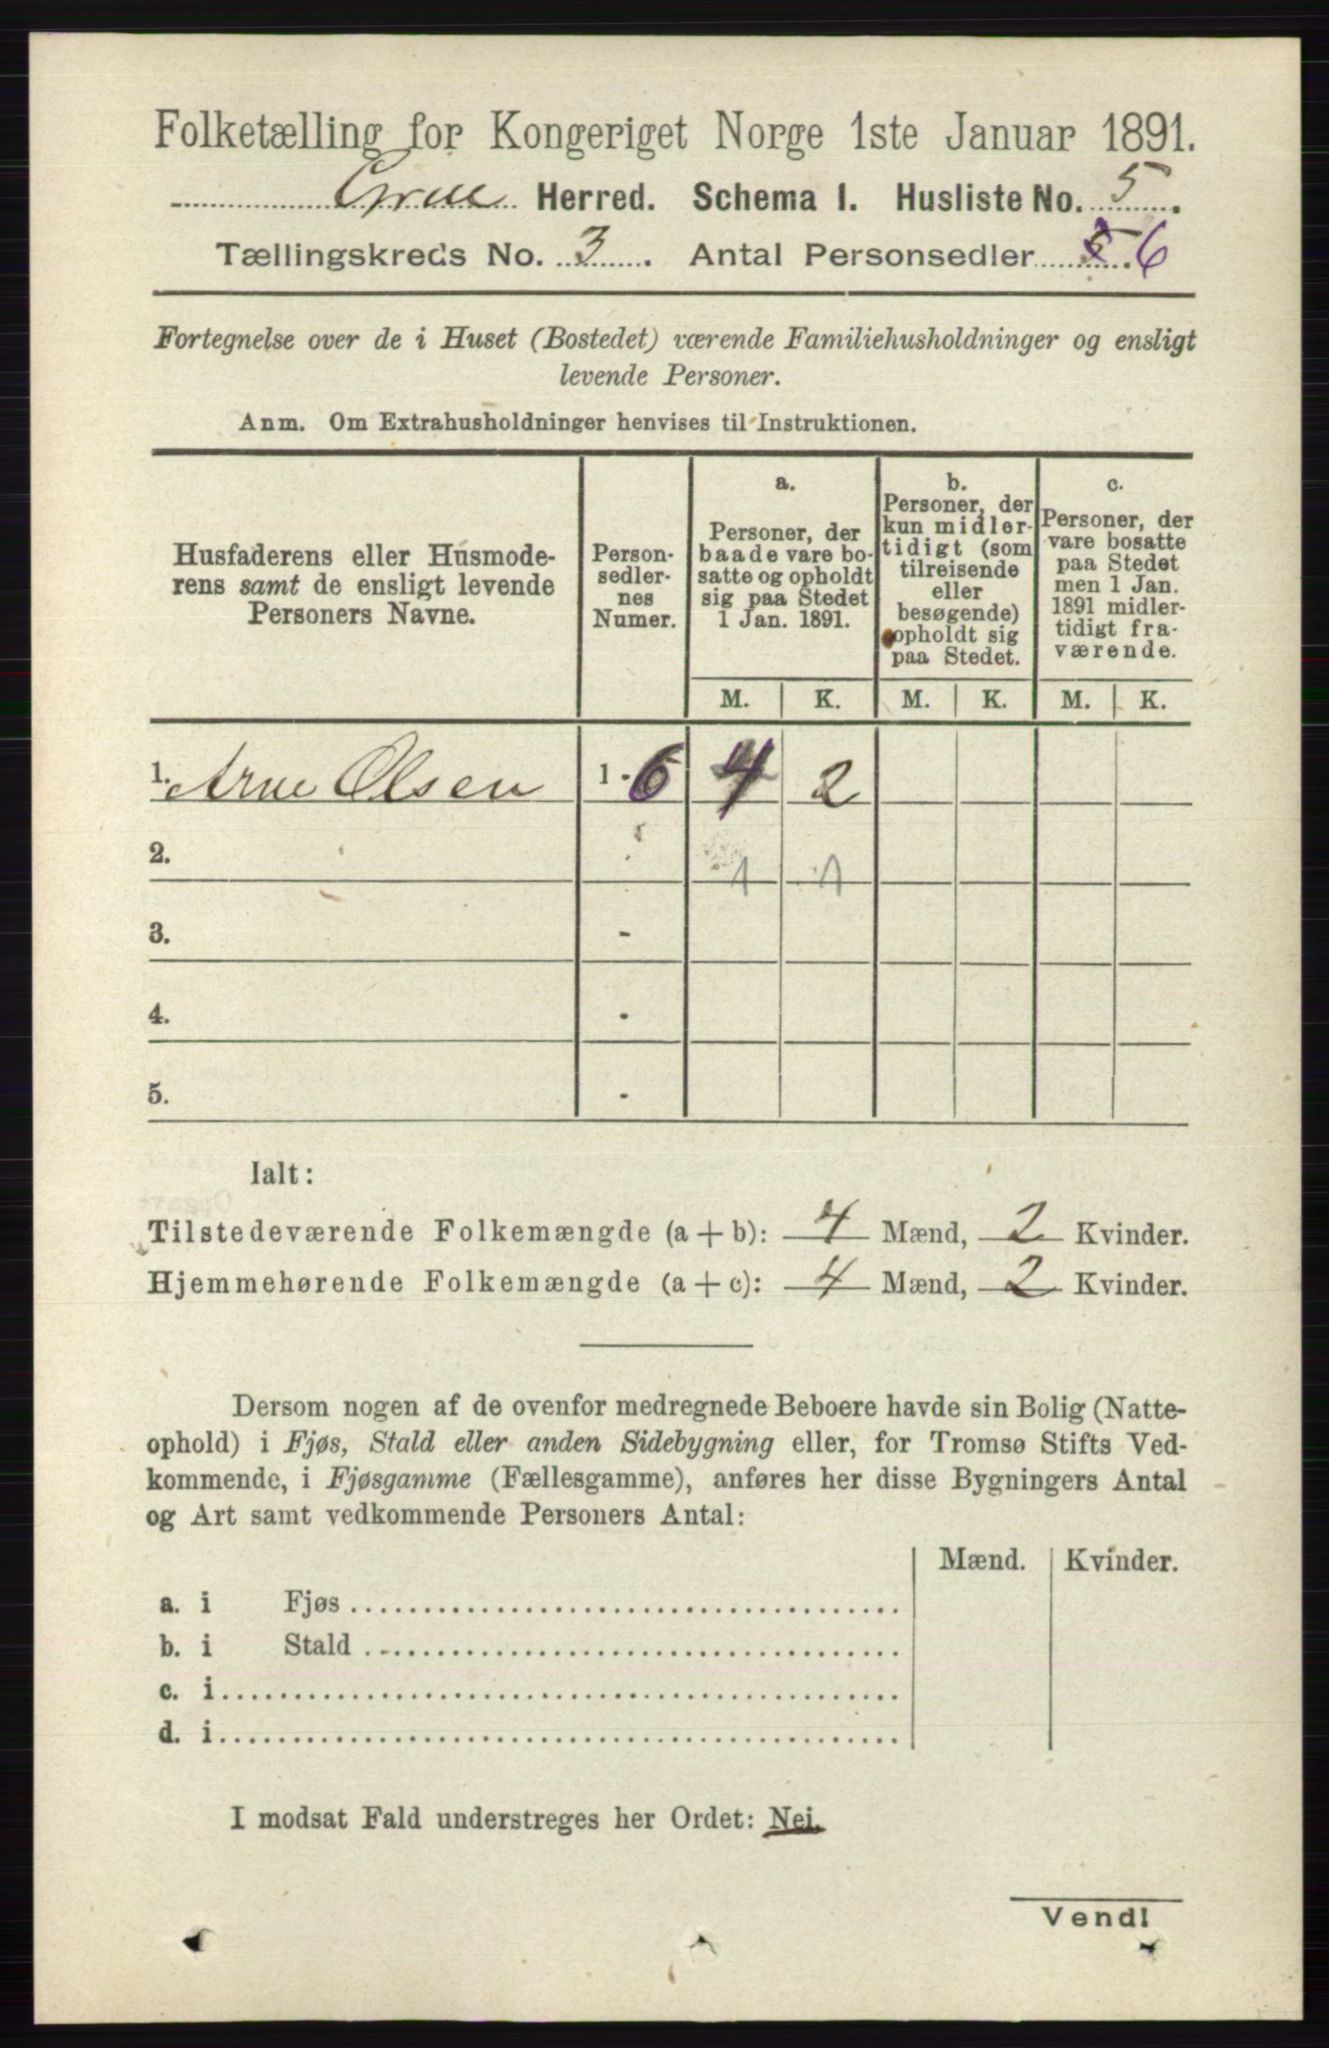 Folketælling for Kongeriget Norge 1ste Januar 1891.
Grue Herred. Schema I. Husliste No. 5.
Tællingskreds No. 3. Antal Personsedler 6
Fortegnelse over de i Huset (Bostedet) værende Familiehusholdninger og ensligt
levende Personer.
Anm. Om Extrahusholdninger henvises til Instruktionen.
Husfaderens eller Husmode-
rens samt de ensligt levende
Personers Navne.
Person-
sedler-
nes
Numer.
a.
Personer, der
baade vare bo-
satte og opholdt
sig paa Stedet
1 Jan. 1891.
b.
Personer, der
kun midler-
tidigt (som
tilreisende
eller
besøgende)
opholdt sig
paa Stedet.
c.
Personer, der
vare bosatte
paa Stedet
men 1 Jan.
1891 midler-
tidigt fra-
værende.
M. K. M. K. M. K.
1. Arne Olsen 1 - 6 4 2
2. 1 1
3. -
4. -
5. -
Ialt:
Tilstedeværende Folkemængde (a + b): 4 Mænd, 2 Kvinder.
Hjemmehørende Folkemængde (a + c): 4 Mænd, 2 Kvinder.
Dersom nogen af de ovenfor medregnede Beboere havde sin Bolig (Natte-
ophold) i Fjøs, Stald eller anden Sidebygning eller, for Tromsø Stifts Ved-
kommende, i Fjøsgamme (Fællesgamme), anføres her disse Bygningers Antal
og Art samt vedkommende Personers Antal:
Mænd. Kvinder.
a. i Fjøs
b. i Stald
c. i
d. i
I modsat Fald understreges her Ordet: Nei.
Vend!